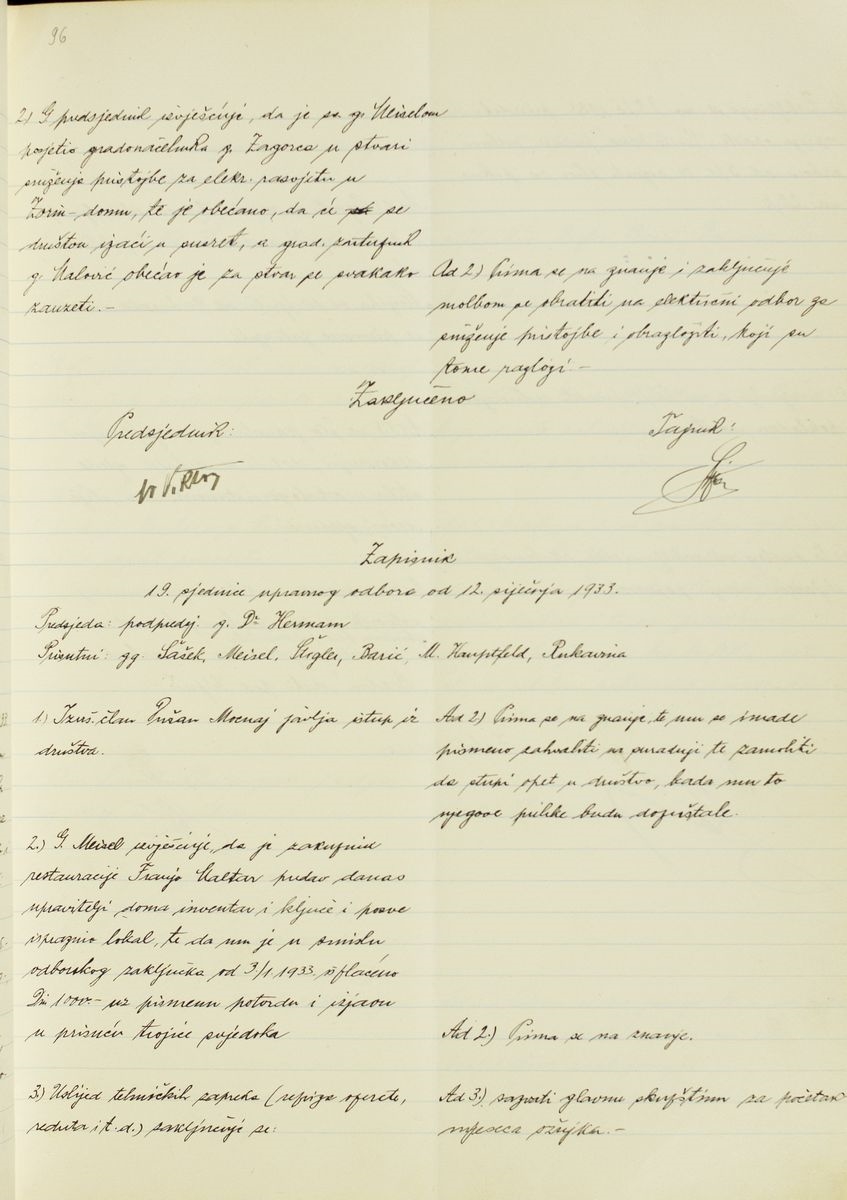 96
2) G. predsjednik izvješćuje, da je sa g. Meiselom
posjetio gradonačelnika g. Zagorca u stvari
sniženja pristojbe za elekr. rasvjetu u
Zorin-domu, te je obećano, da će se
društvu izaći u susret, a grad. zastupnik
g. Malović obećao je za stvar se svakako
zauzeti.-
Ad 2) Prima se na znanje i zaključuje
molbom se obratiti na električni odbor za
sniženje pristojbe i obrazložiti, koji su
tome razlozi.-
Zaključeno
Predsjednik:
Tajnik:
Zapisnik
19. sjednice upravnog odbora od 12. siječnja 1933.
Predsjeda: podpredsj. g. Dr Hermann
Prisutni: gg. Šašek, Meisel, Štogler, Barić, M. Hauptfeld, Rukavina
1) Izvš. član Dušan Mocnaj javlja istup iz
društva.
Ad 2) Prima se na znanje, te mu se imade
pismeno zahvaliti na suradnji te zamoliti
da stupi opet u društvo, kada mu to
njegove prilike budu dopuštale.
2.) G. Meisel izvješćuje, da je zakupnik
restauracije Franjo Maltar predao danas
upravitelji doma inventar i ključe i posve
ispraznio lokal, te da mu je u smislu
odborskog zaključka od 3/1 1933. isplaćeno
Din 1000.- uz pismenu potvrdu i izjavu
u prisuću trojice svjedoka
Ad 2.) Prima se na znanje.
3.) Uslijed tehničkih zapreka (repriza operete,
reduta i t. d.) zaključuje se:
Ad 3.) sazvati glavnu skupštinu za početak
mjeseca ožujka.-